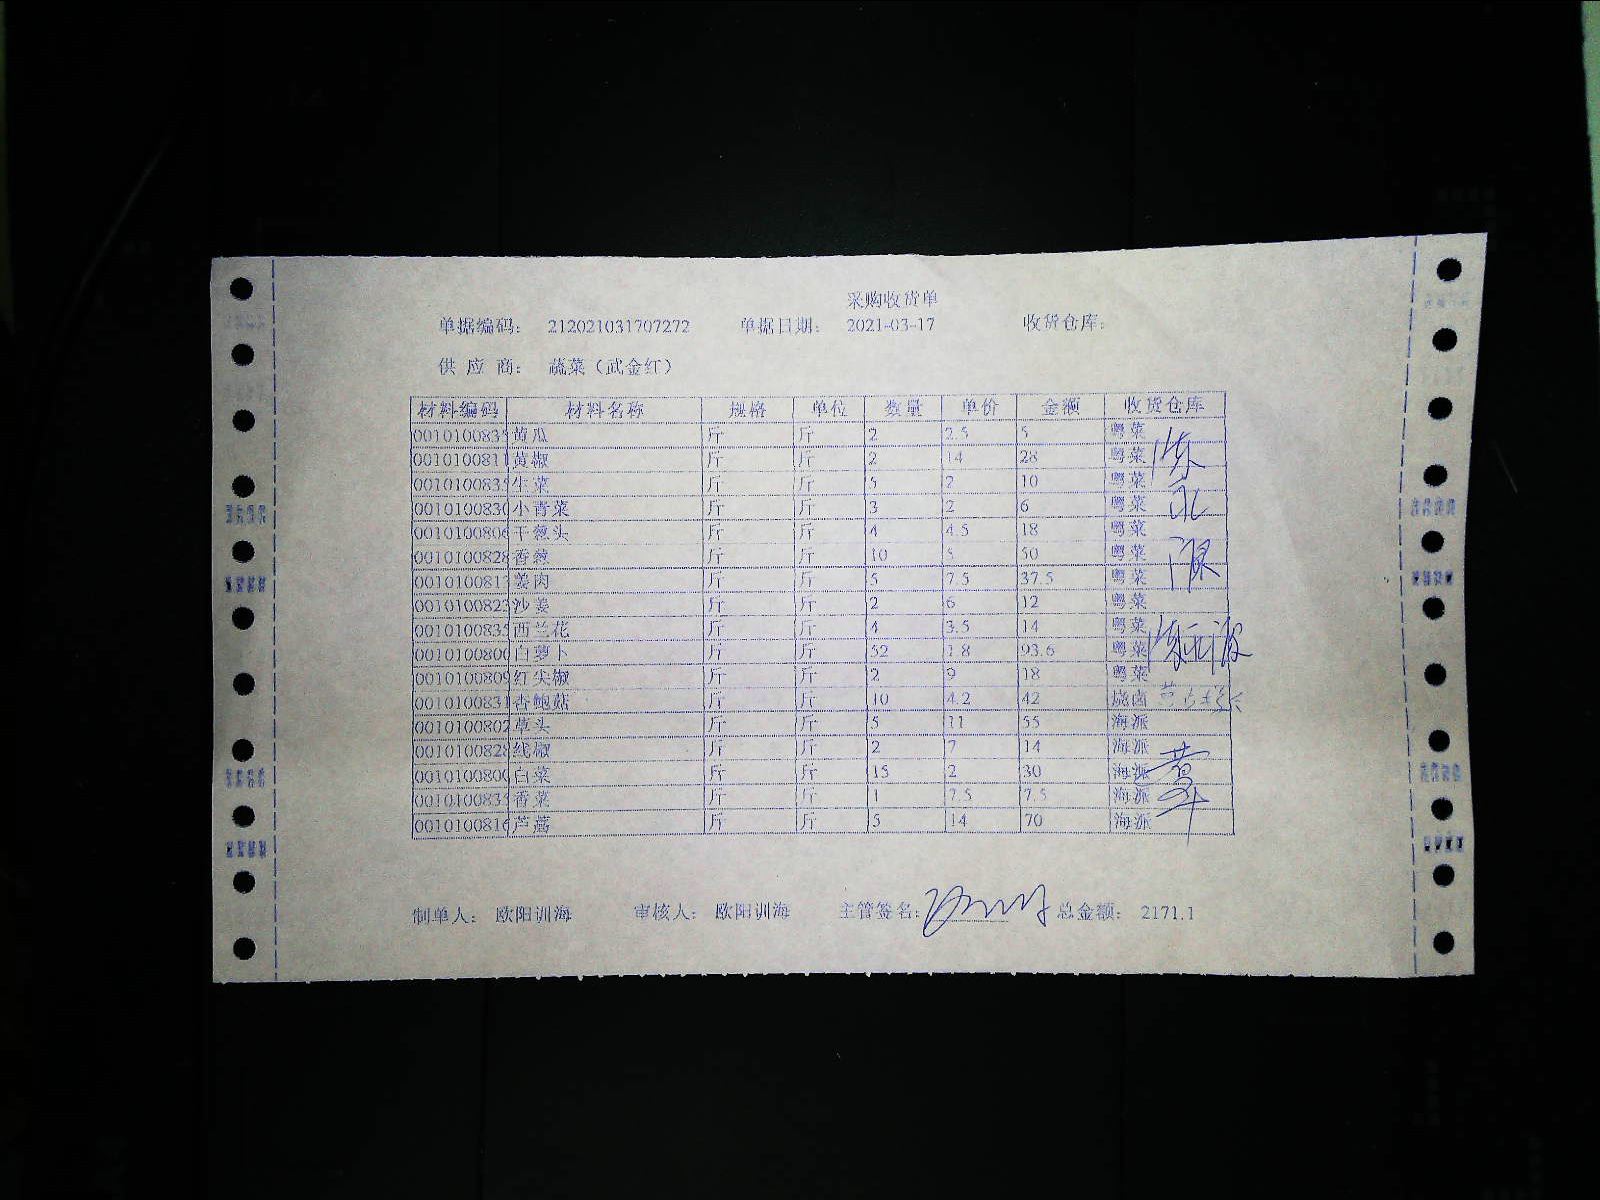 采购收货单
单据编码： 212021031707272 单据日期： 2021-03-17 收货仓库：
供 应 商： 蔬菜（武金红）
材料编码 材料名称 规格 单位 数量 单价 金额 收货仓库
0010100835 黄瓜 斤 斤 2 2.5 5 粤菜
0010100811 黄椒 斤 斤 2 14 28 粤菜
0010100835 生菜 斤 斤 5 2 10 粤菜
001010083 小青菜 斤 斤 3 2 6 粤菜
0010100806 干葱头 斤 斤 4 4.5 18 粤菜
0010100828 香葱 斤 斤 10 5 50 粤菜
001010081 姜肉 斤 斤 5 7.5 37.5 粤菜
001010082 沙姜 斤 斤 2 6 12 粤菜
0010100835 西兰花 斤 斤 4 3.5 14 粤菜
0010100800 白萝卜 斤 斤 52 1.8 93.6 粤菜
0010100809 红尖椒 斤 斤 2 9 18 粤菜
0010100831 杏鲍菇 斤 斤 10 4.2 42 烧卤
0010100802 草头 斤 斤 5 11 55 海派
0010100828 线椒 斤 斤 2 7 14 海派
0010100800 白菜 斤 斤 15 2 30 海派
0010100835 香菜 斤 斤 1 7.5 7.5 海派
0010100816 芦蒿 斤 斤 5 14 70 海派
制单人： 欧阳训海 审核人： 欧阳训海 主管签名： 总金额： 2171.1